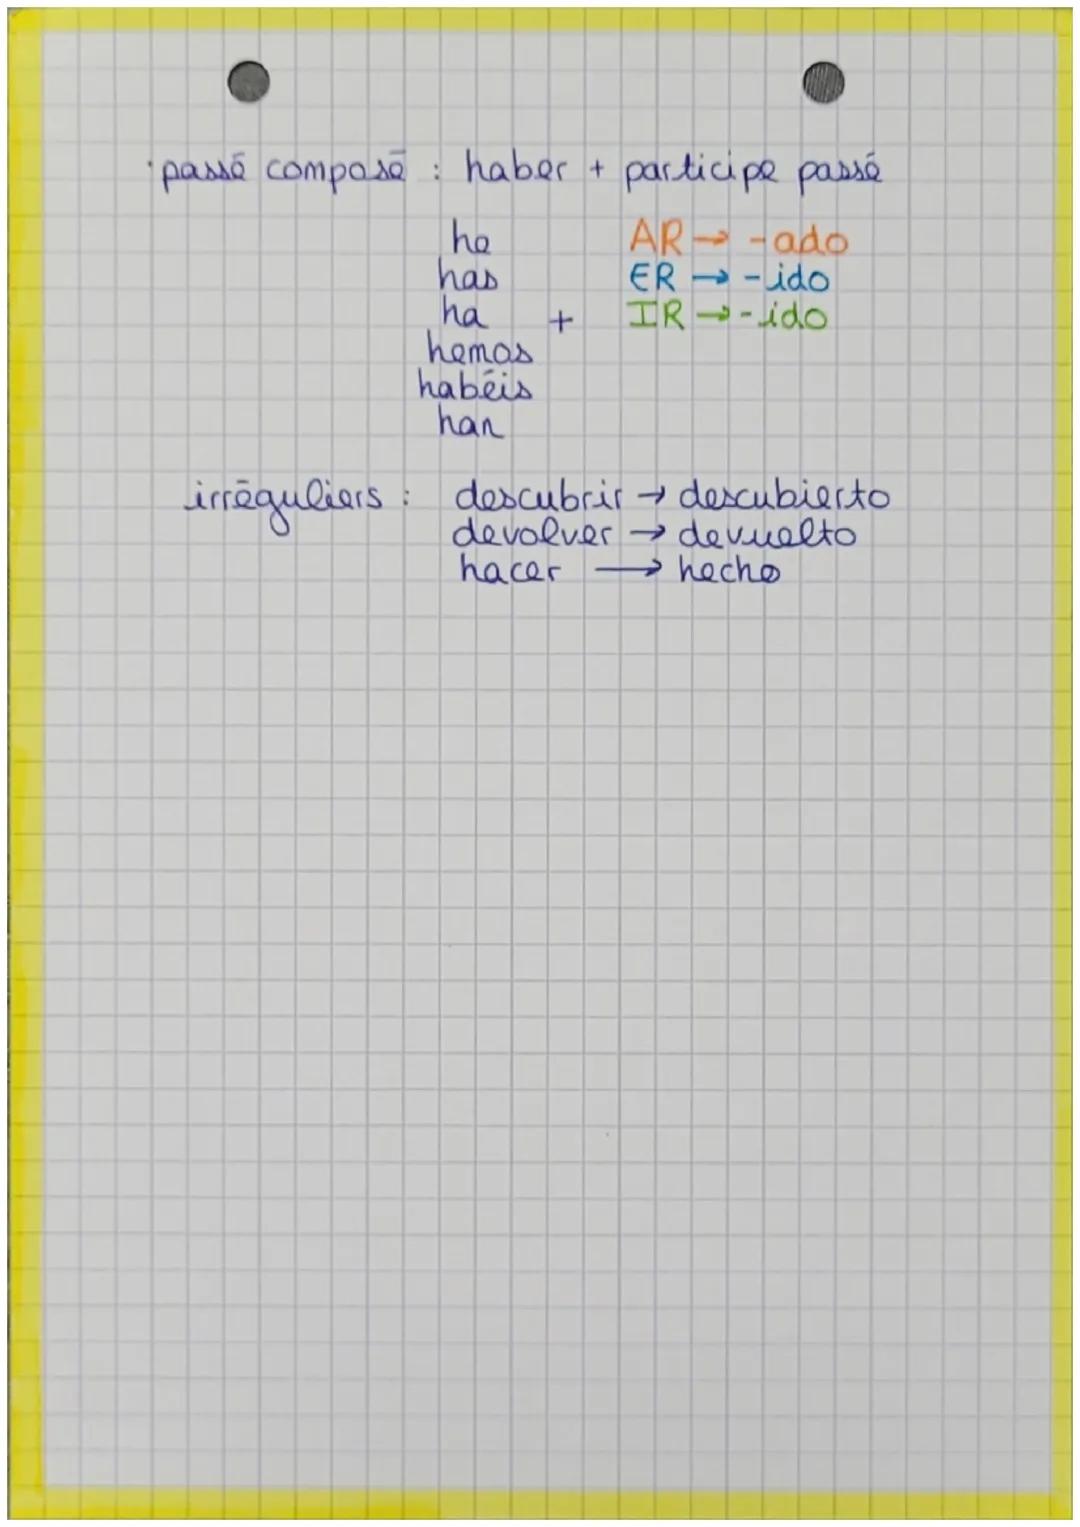 · passé composé : haber + participe passé
he AR → -ado
has ER → -ido
ha + IR → -ido
hemos
habéis
han
irréguliers : descubrir → descubierto
devolver → devuelto
hacer → hecho